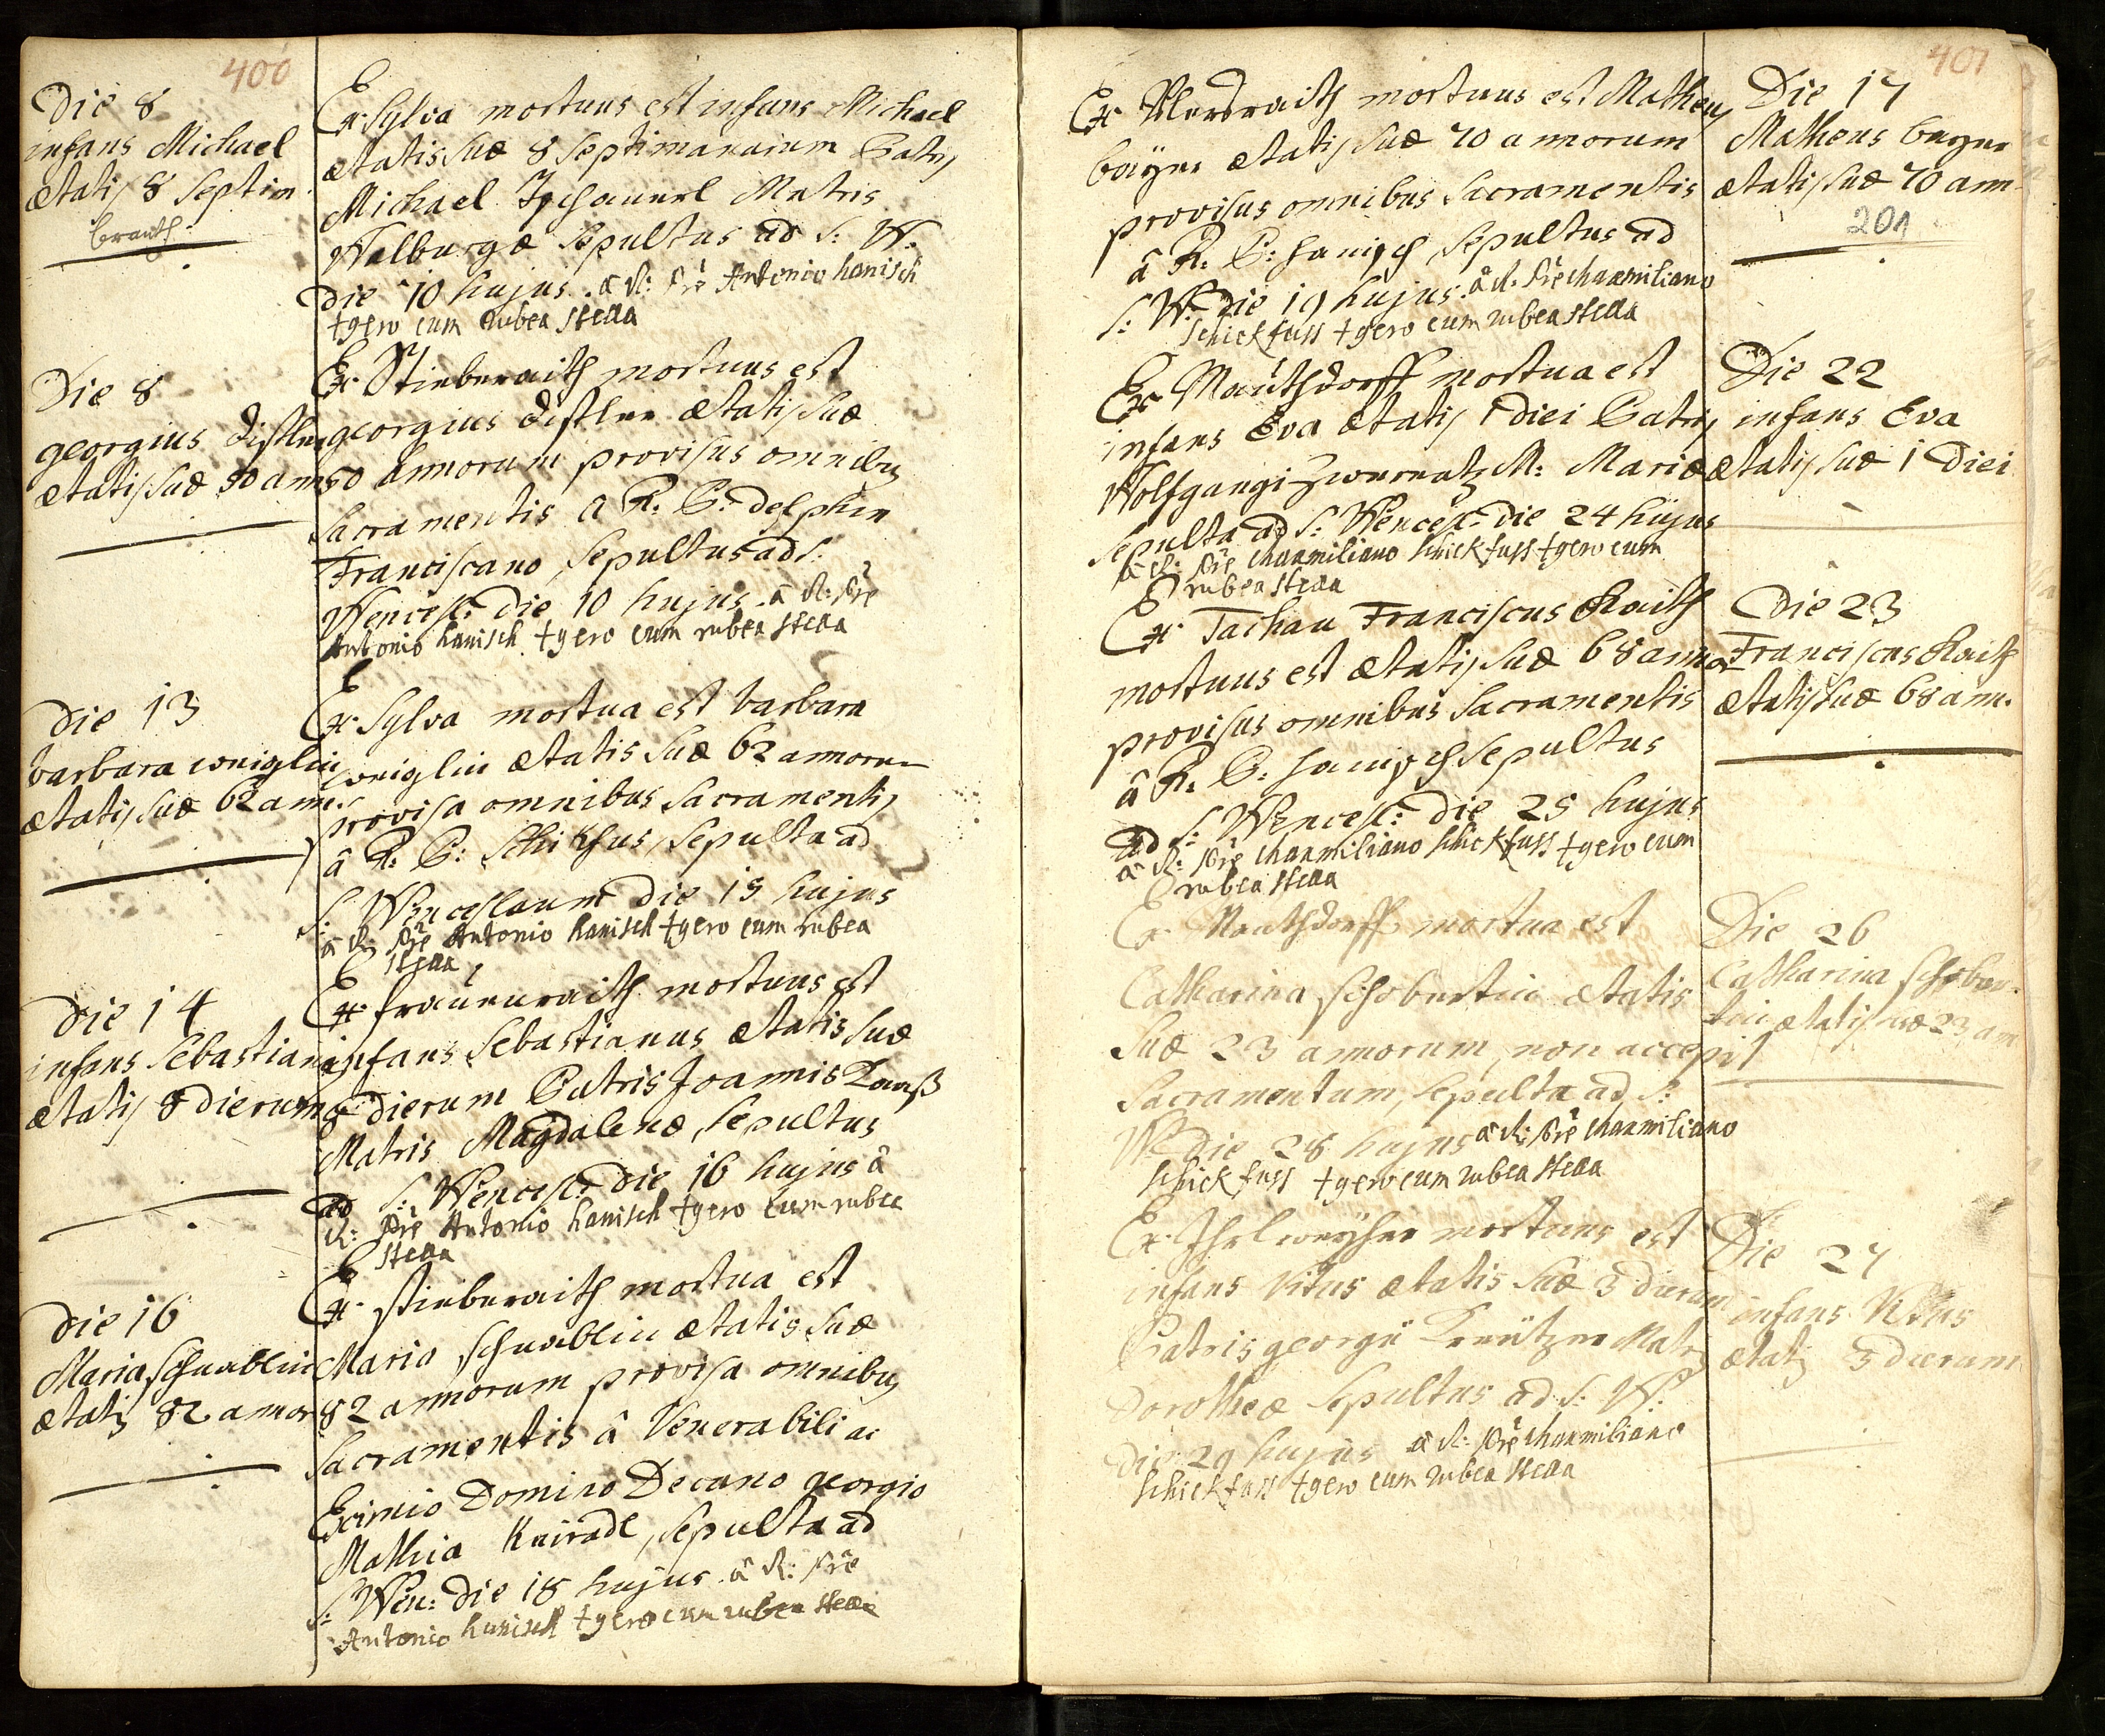 400
Die 8
infans Michael
ætatis 8 septim.
brauth
Ex Sylva mortuus est infans Michael
ætatis suæ 8 septimanarum Patris
Michael Matris
Walburgæ sepultus ad S: W:
Die 10 hujus. â R: Pre Antonio hanisch
†gero cum rubea stella
Die 8
georgius distler
ætatis suæ 50 ann
Ex Stieberaith mortuus est
georgius distler ætatis suæ
50 annorum provisus omnibus
sacramentis a R. P: delphin
Franciscano, sepultus ad S:
Wencesl: die 10 hujus. â R: Pre
Antonio hanisch †gero cum rubea stella
Die 13
barbara woniglin
ætatis suæ 62 ann.
Ex Sylva mortua est barbara
woniglin ætatis suæ 62 annorum
provisa omnibus sacramentis
â R. P: Schikfus, sepulta ad
S: Wenceslaum die 15 hujus
â R: Pre Antonio hanisch †gero cum rubea
stella
Die 14
infans Sebastian
ætatis 8 dierum
Ex frauenraith mortuus est
infans Sebastianus ætatis suæ
8 dierum Patris Joannis
Matris Magdalenæ, sepultus
ad S: Wencesl: die 16 hujus â
R: Pre Antonio hanisch †gero cum rubea
stella
Die 16
Maria schwablin
ætatis 82 annor
Ex stieberaith mortua est
Maria schwablin ætatis suæ
82 annorum provisa omnibus
sacramentis â Venerabili ac
Eximio Domino Decano georgio
Mathia Kniradl, sepulta ad
S: Wen: die 18 hujus. â R: Pre
Antonio hanisch †gero cum rubea stella
401
Ex mortuus est Matheus
bayer ætatis suæ 70 annorum
provisus omnibus sacramentis
â R: P: hanisch sepultus ad
S: W: die 19 hujus. â R. Pre Maxmiliano
schickfuss †gero cum rubea stella
Die 17
Matheus bayer
ætatis suæ 70 ann
201
Ex Mauthdorff mortua est
infans Eva ætatis 1 diei Patris
Wolfgangi M: Mariæ
sepulta ad S: Wencesl: die 24 hujus
â R: Pre Maxmiliano schickfuss †gero cum
rubea stella
Die 22
infans Eva
ætatis suæ 1 Diei
Ex Tachau Franciscus Raith
mortuus est ætatis suæ 68 annor
provisus omnibus sacramentis
â R. P: hanisch sepultus
ad S: Wencesl: die 25 hujus
â R: Pre Maxmiliano schickfuss †gero cum
rubea stella
Die 23
Franciscus Raith
ætatis suæ 68 ann.
Ex Mauthdorff mortua est
Catharina schobertin ætatis
suæ 23 annorum, non accepit
sacramentum, sepulta ad S:
W: die 28 hujus â R: Pre Maxmiliano
schickfuss †gero cum rubea stella
Die 26
Catharina schober-
tin ætatis suæ 23 ann
Ex Ihrlweyher mortuus est
infans Vitus ætatis suæ 3 dierum
Patris georgii Kreützer Matris
Dorotheæ sepultus ad S: W:
die 29 hujus â R: Pre Maxmiliano
schickfuss †gero cum rubea stella
Die 27
infans Vitus
ætatis 3 dierum